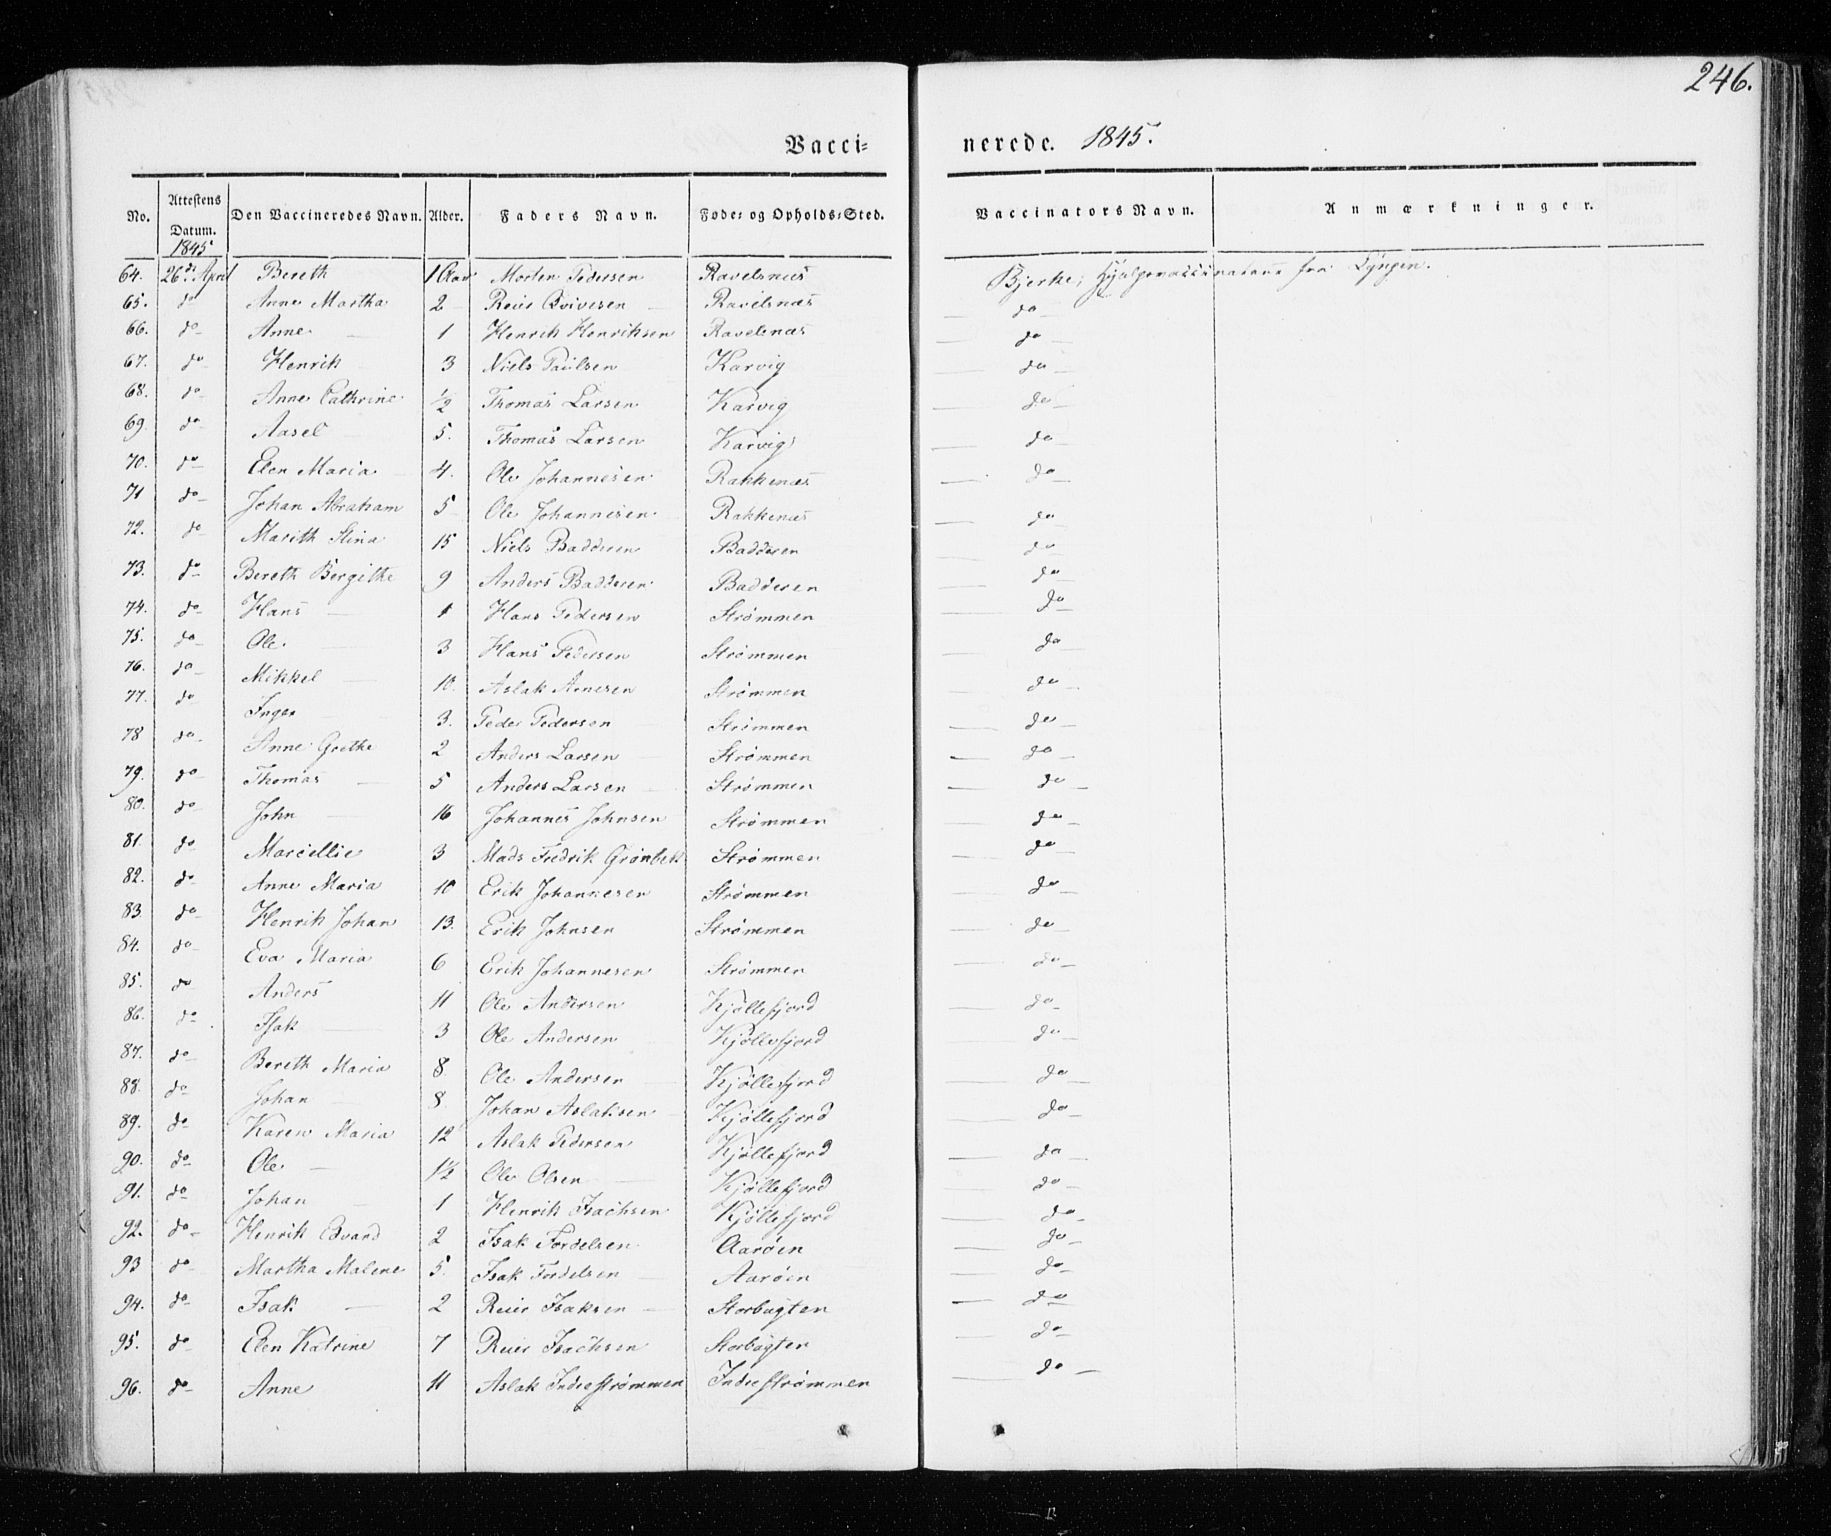 246.
Vacci= nerede. 1845.
No. Attestens Datum. Den Vaccineredes Navn. Alder. Faders Navn. Føde= og Opholds=Sted. Vaccinators Navn. Anmærkninger.
1845
64. 26de April Bereth 1 Aar Morten Pedersen Ravelsnæs Bjerke, Hjælpevaccinateur fra Lyngen.
65. do Anne Martha 2 Reier Qvivesen Ravelsnæs do
66. do Anne 1 Henrik Henriksen Ravelsnæs do
67. do Henrik 3 Niels Paulsen Karvig do
68. do Anne Cathrine 1/2 Thomas Larsen Karvig do
69. do Aasel 5. Thomas Larsen Karvig do
70. do Elen Maria 4. Ole Johannesen Rakkenæs do
71 do Johan Abraham 5 Ole Johannesen Rakkenæs do
72. do Marith Stina 15 Niels Badderen Badderen do
73. do Bereth Bergithe 9 Anders Badderen Badderen do
74. do Hans 1 Hans Pedersen Strømmen do
75. do Ole 3 Hans Pedersen Strømmen do
76. do Mikkel 10. Aslak Arnesen Strømmen do
77. do Inger 3. Peder Pedersen Strømmen do
78 do Anne Grethe 2 Anders Larsen Strømmen do
79. do Thomas 5 Anders Larsen Strømmen do
80. do John 16 Johannes Johnsen Strømmen do
81. do Marcellie 3 Mads Fredrik Grønbek Strømmen do
82. do Anne Maria 10 Erik Johannesen Strømmen do
83 do Henrik Johan 13. Erik Johnsen Strømmen do
84. do Eva Maria 6 Erik Johannesen Strømmen do
85. do Anders 11 Ole Andersen Kjøllefjord do
86. do Isak 3 Ole Andersen Kjøllefjord do
87. do Bereth Maria 8 Ole Andersen Kjøllefjord do
88. do Johan 8 Johan Aslaksen Kjøllefjord do
89. do Karen Maria 12 Aslak Pedersen Kjøllefjord do
90. do Ole 1 1/2 Ole Olsen Kjøllefjord do
91. do Johan 1 Henrik Isachsen Kjøllefjord do
92. do Henrik Edvard 2 Isak Fordelsen Aarøen do
93 do Martha Malene 5. Isak Fordelsen Aarøen do
94. do Isak 2 Reier Isaksen Storbugten do
95. do Elen Katrine 7 Reier Isachsen Storbugten do
96. do Anne 11 Aslak Indrestrømmen Indrestrømmen do